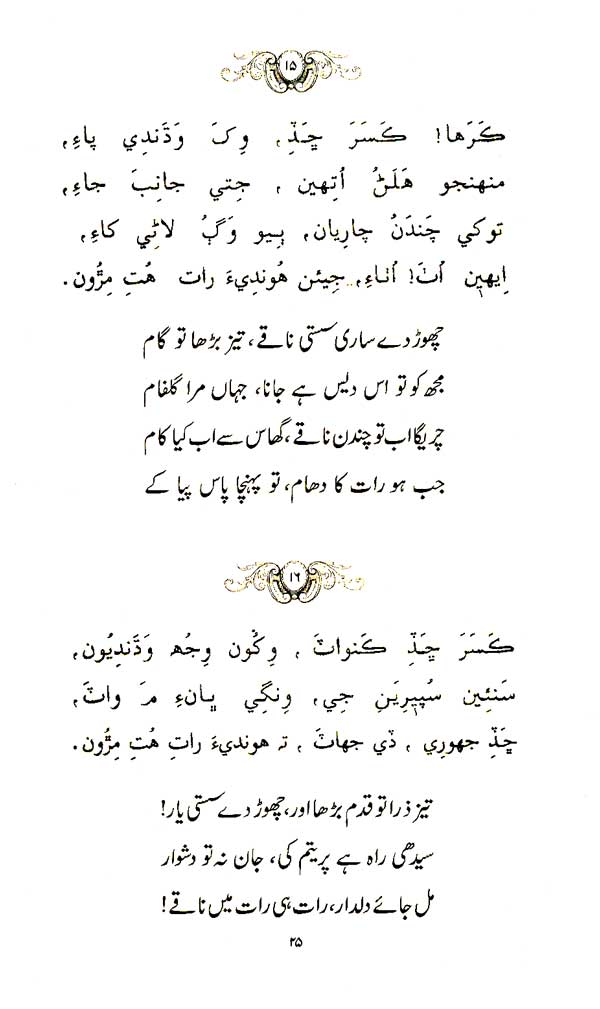 ۱۵
ڪَرَها! ڪَسَرَ ڇَڏِ، وِکَ وَڌَندِي پاءِ،
منهنجو هَلَڻُ اُتِهين، جِتي جانِبَ جاءِ،
توکي چَندَنُ چارِيان، ٻِيو وَڳُ لاڻِي کاءِ،
اِيهين اُٺَ! اُٺاءِ، جِيئن هُوندِيءَ رات هُتِ مِڙُون.
چھوڑ دے ساری سستی ناقے، تیز بڑھا تو گام
مجھ کو تو اس دیس ہے جانا، جہاں مرا گلفام
چریگا اب تو چندن ناقے، گھاس سے اب کیا کام
جب ہو رات کا دھام، تو پہنچا پاس پیا کے
۱۶
ڪَسَرَ ڇَڏِ ڪَنواٽَ، وِکُون وِجُهہ وَڌَندِيُون،
سَنئِين سُپيرِيَنِ جِي، وِنگِي ڀانءِ مَ واٽَ،
ڇَڏِ جهورِي، ڏي جهاٽَ، تہ هوندِيءَ راتِ هُتِ مِڙُون.
تیز ذرا تو قدم بڑھا اور، چھوڑ دے سستی یار!
سیدھی راہ ہے پریتم کی، جان نہ تو دشوار
مل جائے دلدار، رات ہی رات میں ناقے!
۲۵